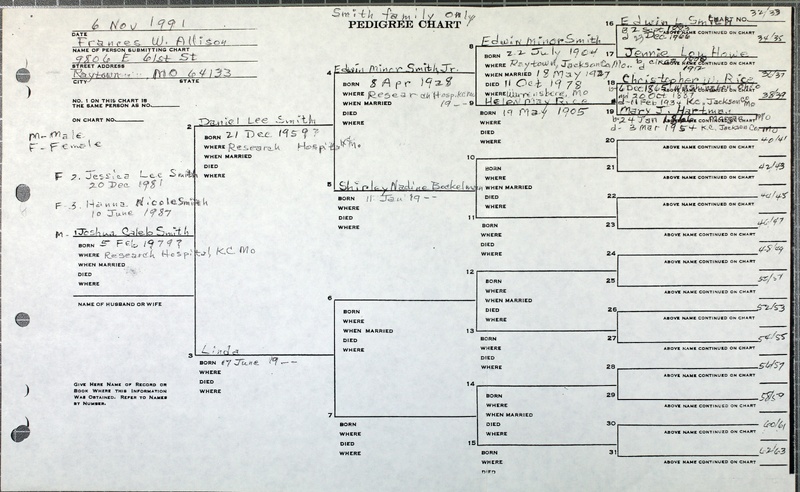 Smith family only
PEDIGREE CHART
CHART NO.
6 Nov 1991
DATE
Frances W. Allison
NAME OF PERSON SUBMITTING CHART
9806 E 61st St
STREET ADDRESS
Raytown MO 64133
CITY STATE
NO. 1 ON THIS CHART IS
THE SAME PERSON AS NO.
ON CHART NO.
M-Male
F-Female
F 2. Jessica Lee Smith
20 Dec 1981
F-3. Hanna Nicole Smith
10 June 1987
M- 1 Joshua Caleb Smith
BORN 5 Feb 1979?
WHERE Research Hospital, K.C. Mo
WHEN MARRIED
DIED
WHERE
NAME OF HUSBAND OR WIFE
GIVE HERE NAME OF RECORD OR
BOOK WHERE THIS INFORMATION
WAS OBTAINED. REFER TO NAMES
BY NUMBER.
2
Daniel Lee Smith
BORN 21 Dec 1959?
WHERE Research Hospital
WHEN MARRIED
DIED
WHERE
3 Linda
BORN 17 June 19--
WHERE
DIED
WHERE
4
Edwin Minor Smith Jr.
BORN 8 Apr 1928
WHERE Research Hosp. K.C. Mo
WHEN MARRIED 19--
DIED
WHERE
5 Shirley Nadine Beckelman
BORN 11 Jan 19--
WHERE
DIED
WHERE
6
BORN
WHERE
WHEN MARRIED
DIED
WHERE
7
BORN
WHERE
DIED
WHERE
8
Edwin Minor Smith
BORN 22 July 1904
WHERE Raytown, Jackson Co Mo.
WHEN MARRIED 18 May 1927
DIED 11 Oct 1978
WHERE Warrensburg, Mo
9 Helen May Rice
BORN 19 May 1905
WHERE
DIED
WHERE
10
BORN
WHERE
WHEN MARRIED
DIED
WHERE
11
BORN
WHERE
DIED
WHERE
12
BORN
WHERE
WHEN MARRIED
DIED
WHERE
13
BORN
WHERE
DIED
WHERE
14
BORN
WHERE
WHEN MARRIED
DIED
WHERE
15
BORN
WHERE
DIED
16 Edwin L Smith
32/33
ABOVE NAME CONTINUED ON CHART
17 Jennie Lou Howe
34/35
ABOVE NAME CONTINUED ON CHART
18 Christopher W. Rice
36/37
d-11 Feb 1934 K.C. Jackson Co
38/39
19 Mary J. Hartman
d- 3 Mar 1954 K.C. Jackson Co Mo
20
40/41
ABOVE NAME CONTINUED ON CHART
21
42/43
ABOVE NAME CONTINUED ON CHART
22
ABOVE NAME CONTINUED ON CHART
23
46/47
ABOVE NAME CONTINUED ON CHART
24
ABOVE NAME CONTINUED ON CHART
25
ABOVE NAME CONTINUED ON CHART
26
52/53
ABOVE NAME CONTINUED ON CHART
27
54/55
ABOVE NAME CONTINUED ON CHART
28
56/57
ABOVE NAME CONTINUED ON CHART
29
58/59
ABOVE NAME CONTINUED ON CHART
30
60/61
ABOVE NAME CONTINUED ON CHART
31
62/63
ABOVE NAME CONTINUED ON CHART